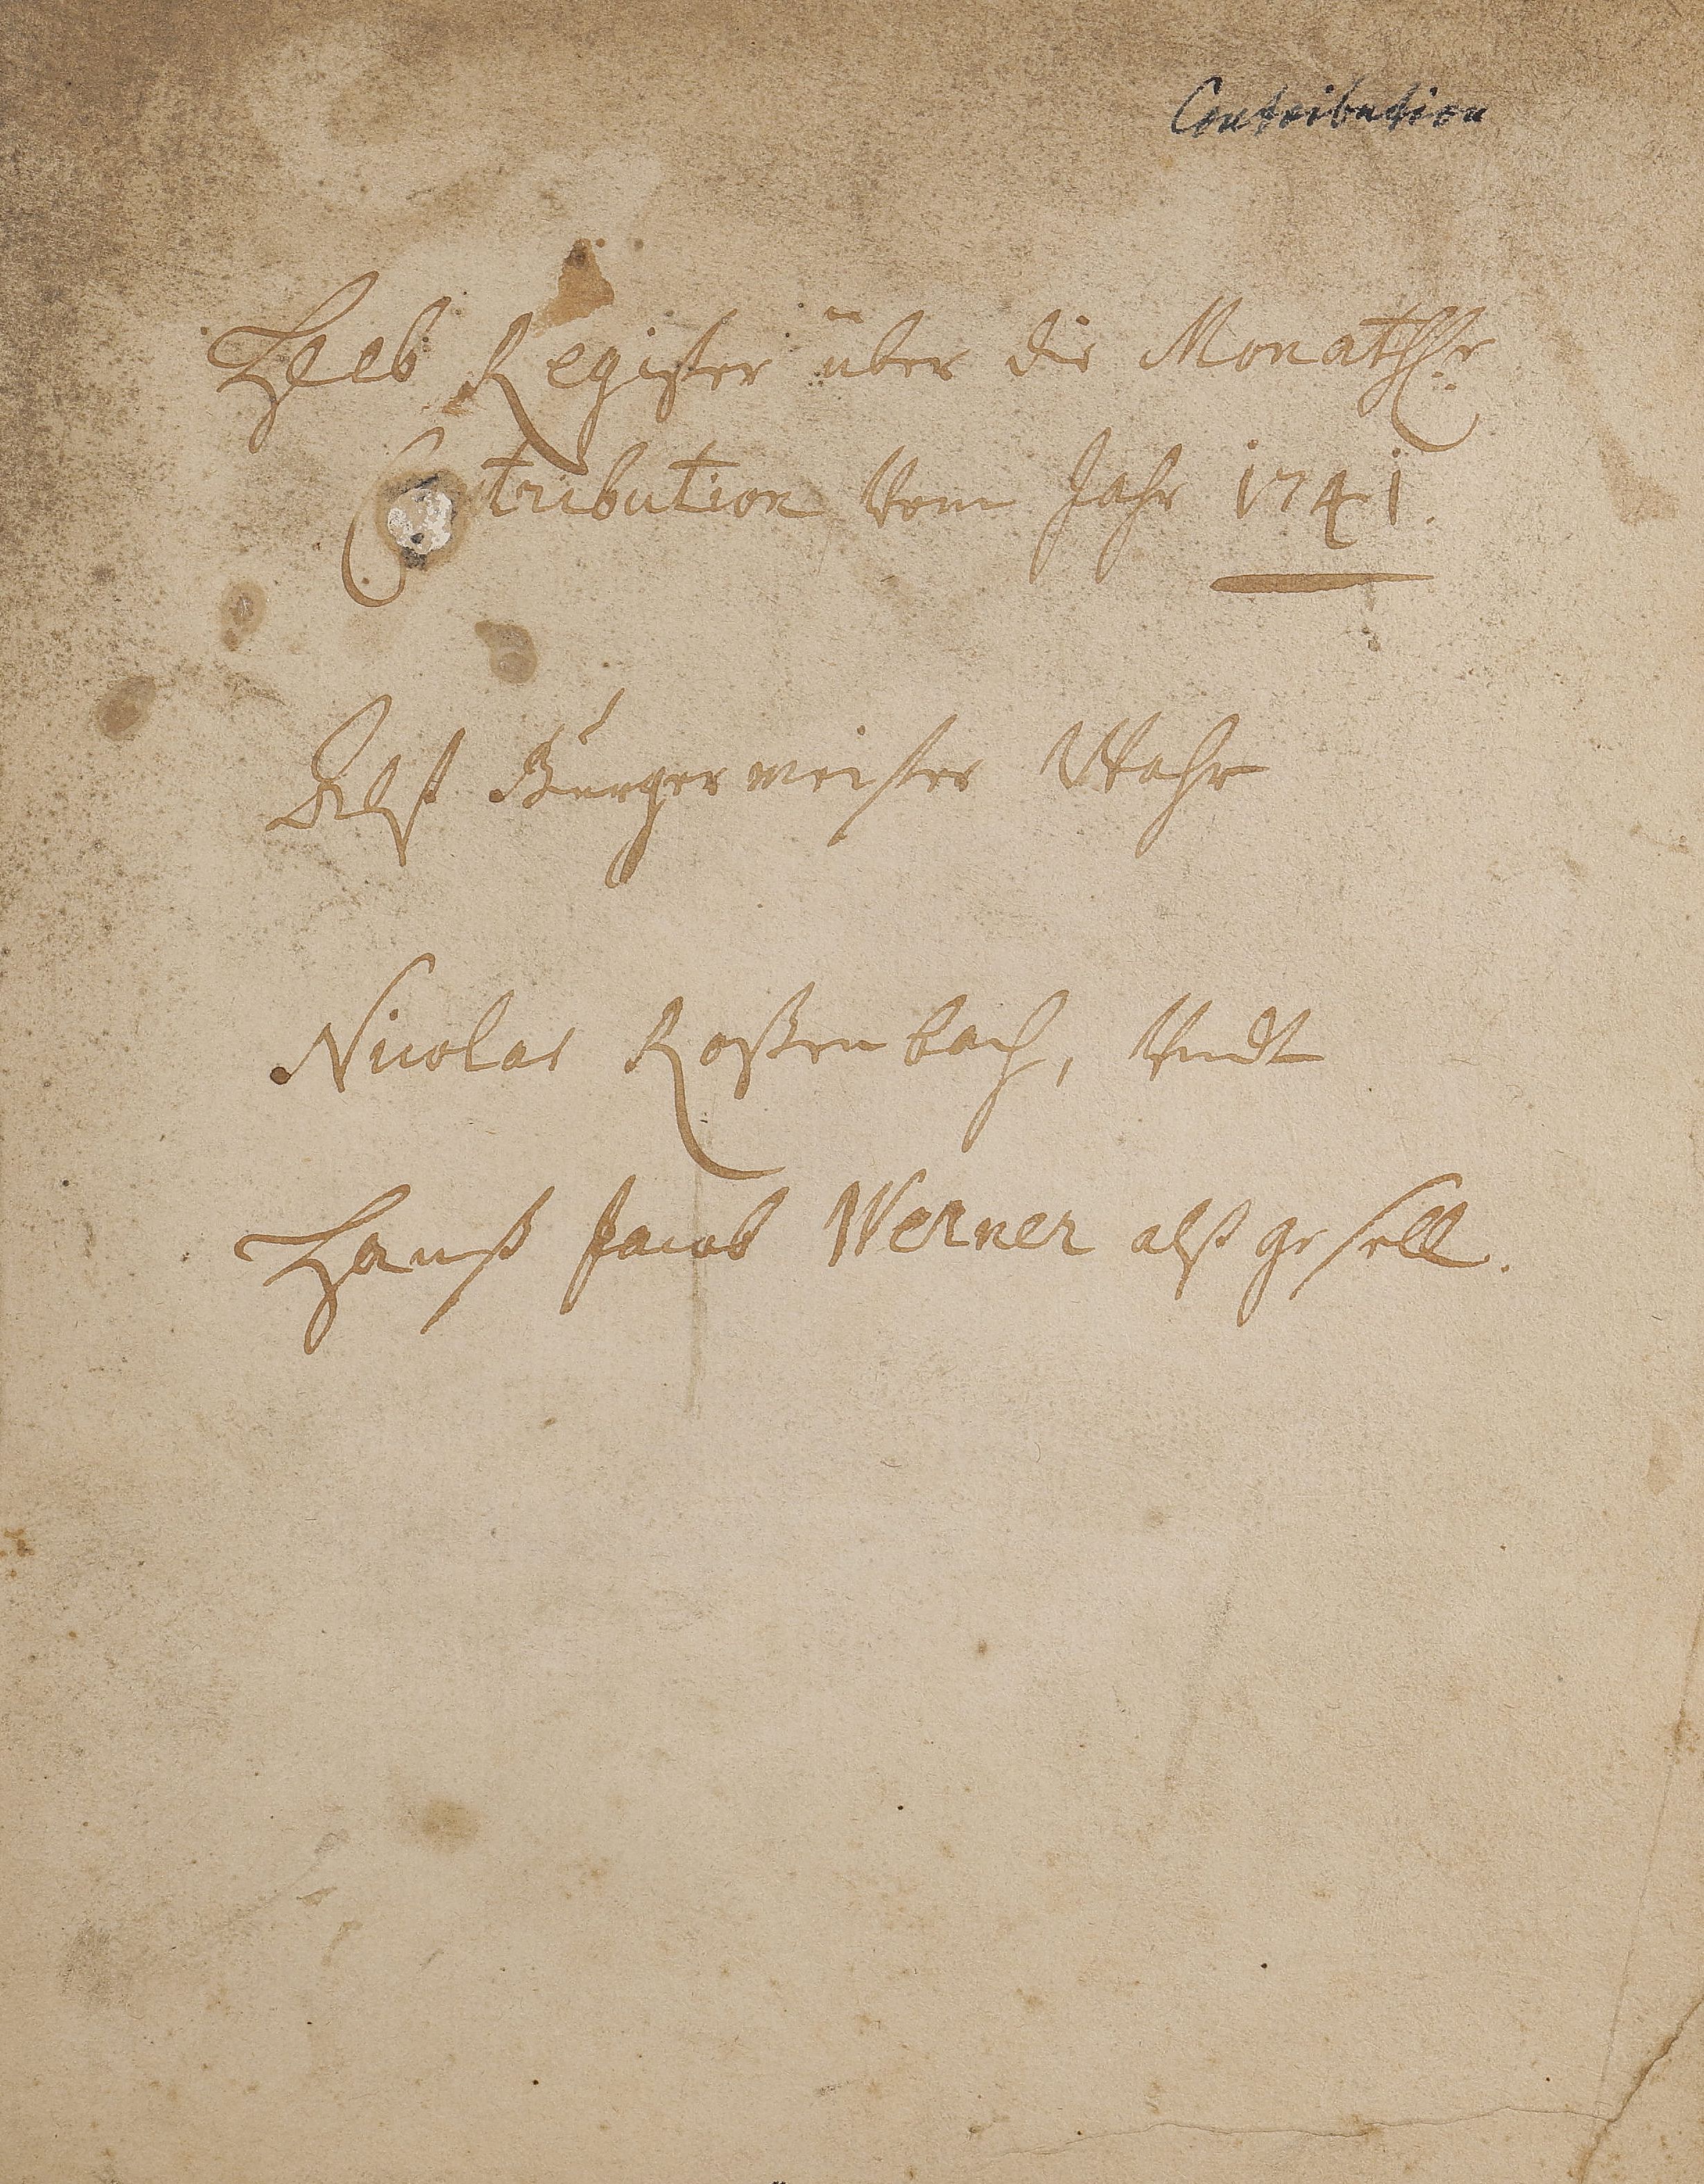 Contribution
Heb Register über die Monathl:r
Contribution Vom Jahr 1741.
Alß Burgermeister Wahr
Nicolas Roßenbach, Vndt
Hanß Jacob Werner alß gesell.